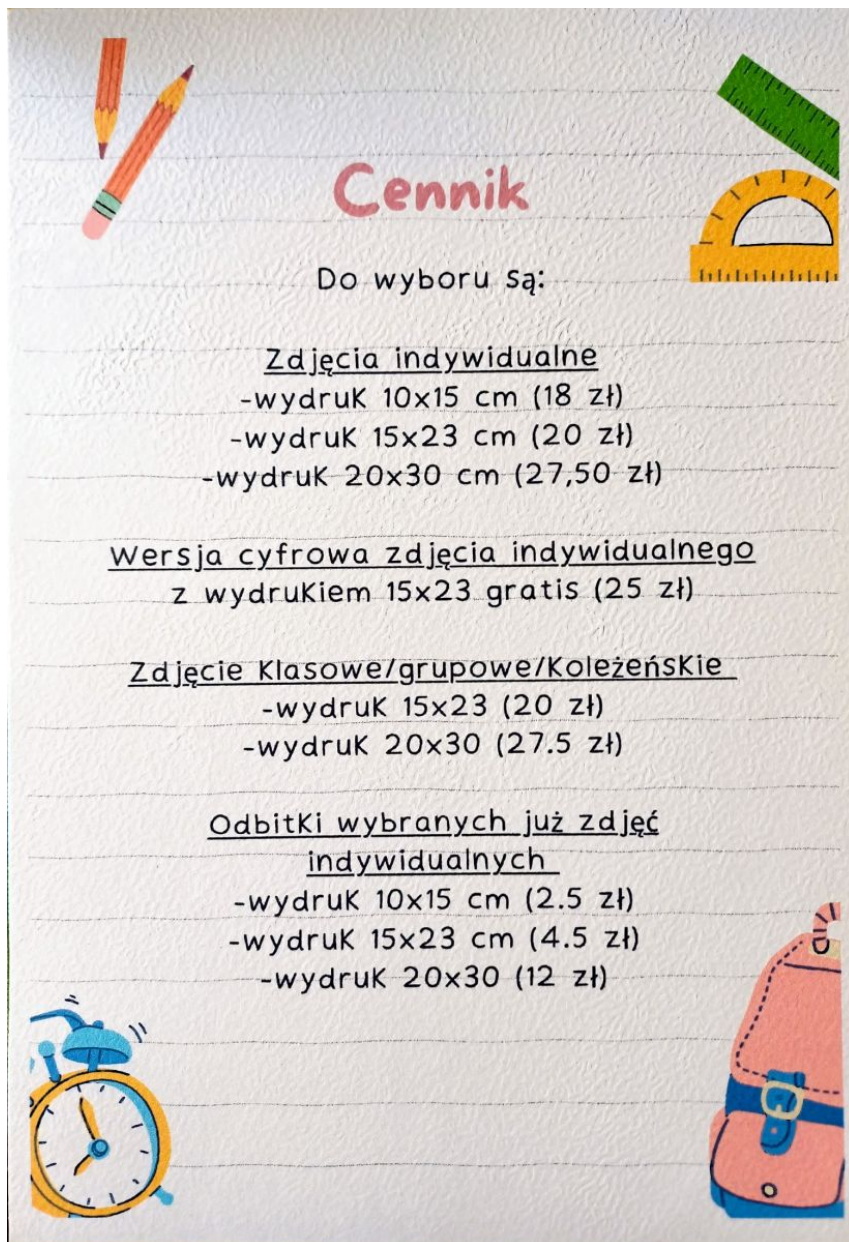 Cennik
Do wyboru są:
Zdjęcia indywidualne
-wydruk 10x15 cm (18 zł)
-wydruk 15x23 cm (20 zł)
-wydruk 20x30 cm (27,50 zł)
Wersja cyfrowa zdjęcia indywidualnego
z wydrukiem 15x23 gratis (25 zł)
Zdjęcie klasowe/grupowe/koleżeńskie
-wydruk 15x23 (20 zł)
-wydruk 20x30 (27.5 zł)
Odbitki wybranych już zdjęć
indywidualnych
-wydruk 10x15 cm (2.5 zł)
-wydruk 15x23 cm (4.5 zł)
-wydruk 20x30 (12 zł)